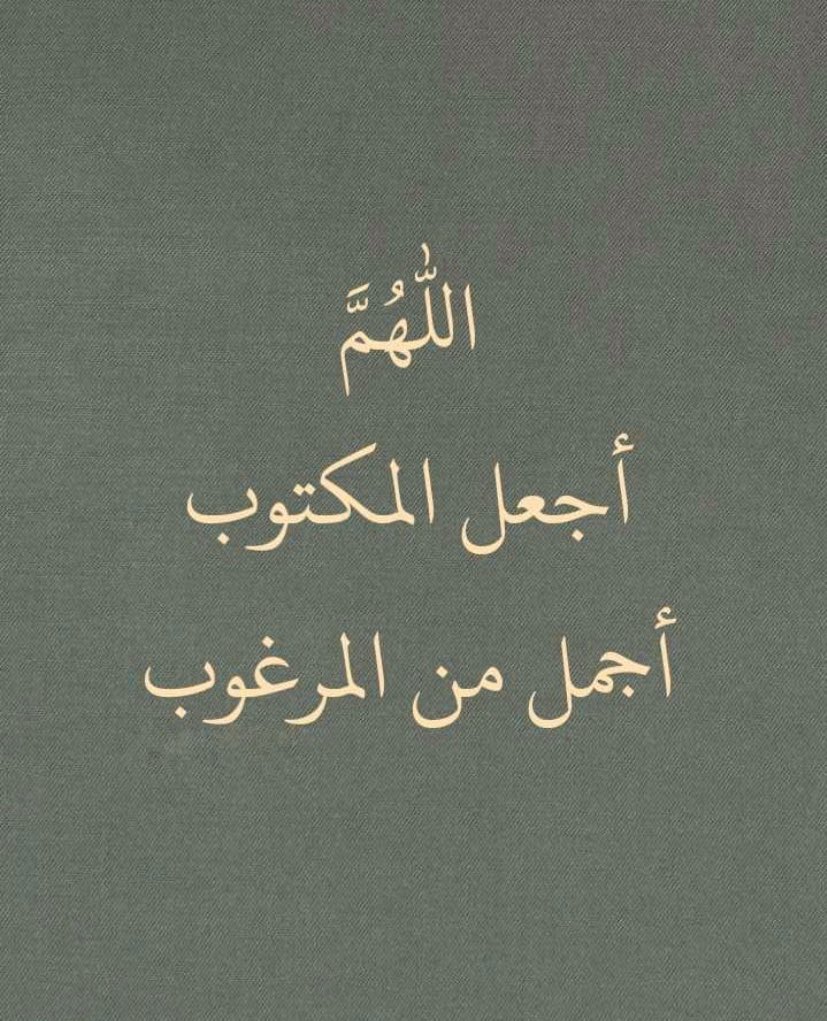 اللّٰهُمَّ
أجعل المكتوب
أجمل من المرغوب